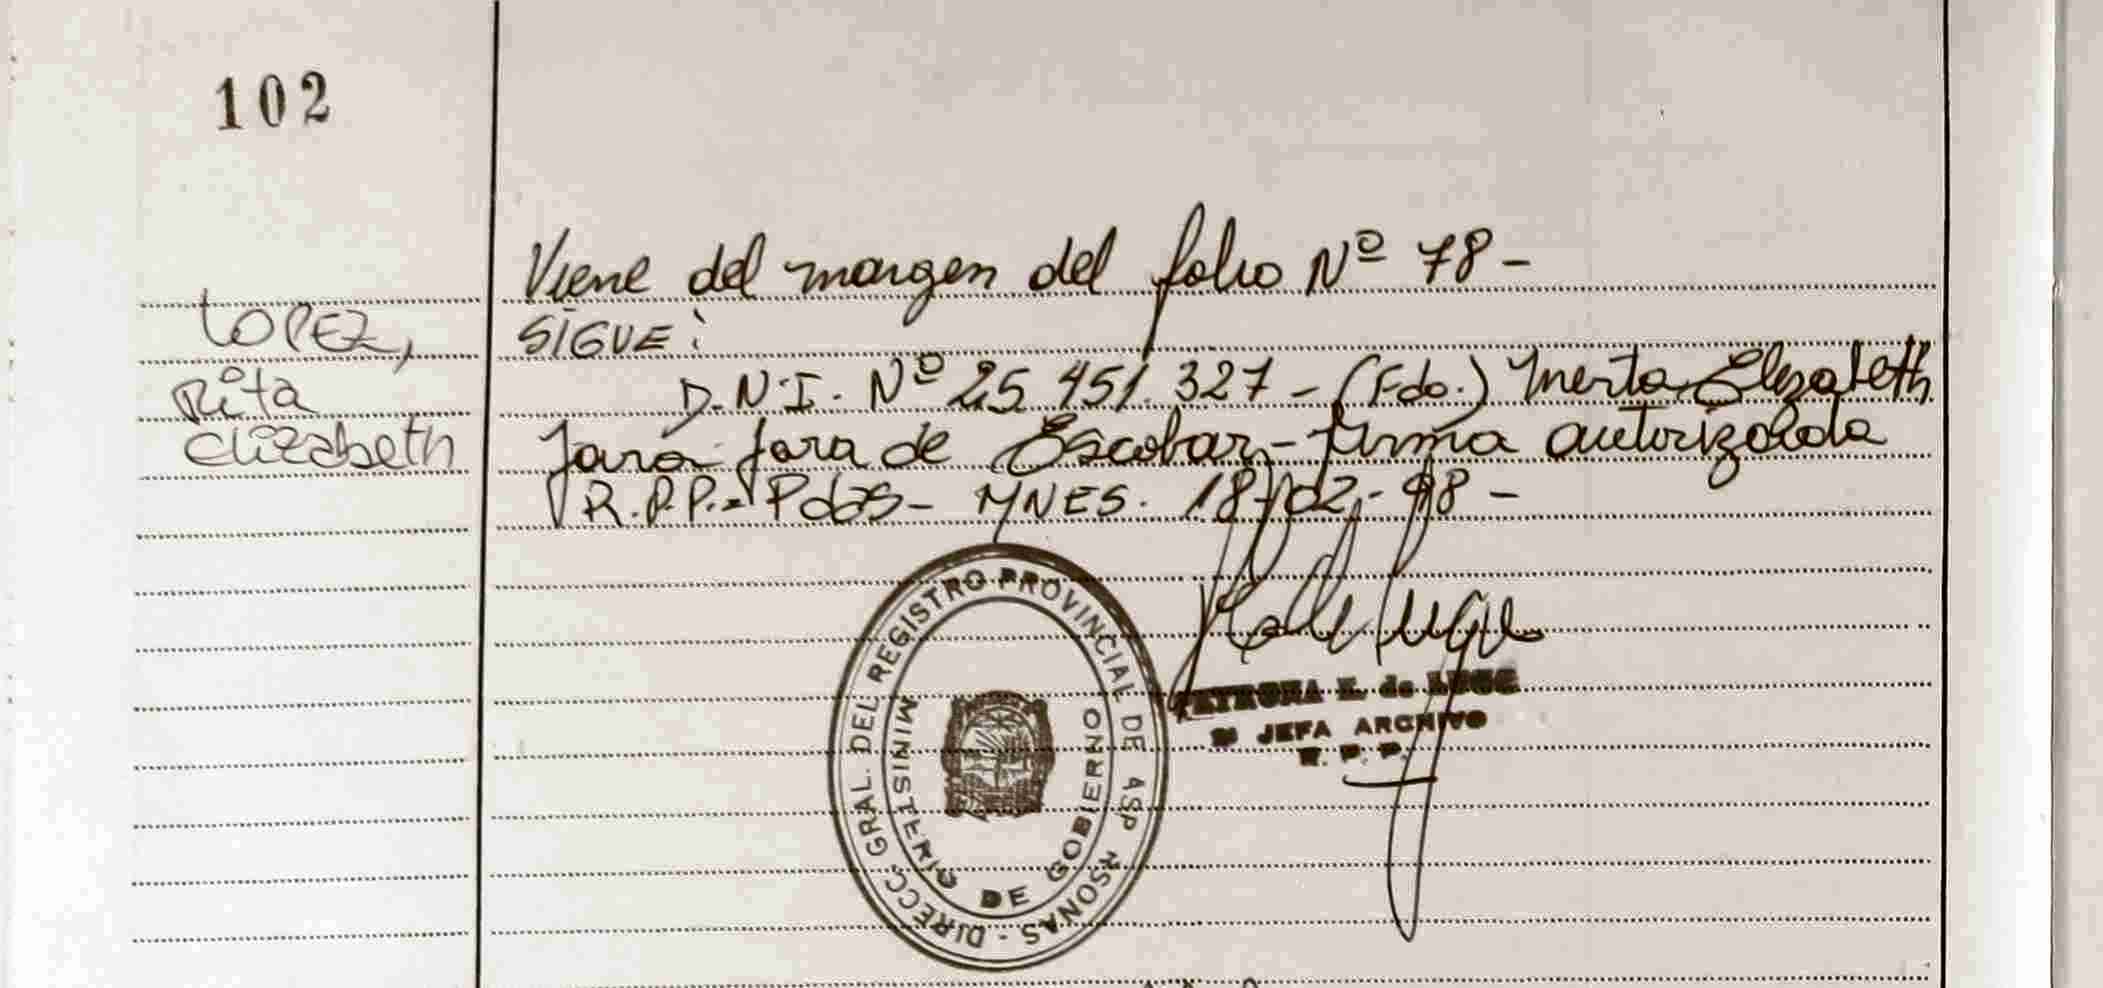 102
Viene del margen del folio Nº 78 -
LOPEZ,
SIGUE:
Rita
D.N.I. Nº 25.451.327 - (Fdo.) Mirta Elizabeth
Elizabeth
Jara Jara de Escobar - firma autorizada
R.P.P. - Pdas - MNES. 18-02-98 -
DIRECC. GRAL. DEL REGISTRO PROVINCIAL DE
MINISTERIO DE GOBIERNO
de
JEFA ARCHIVO
R. P. P.